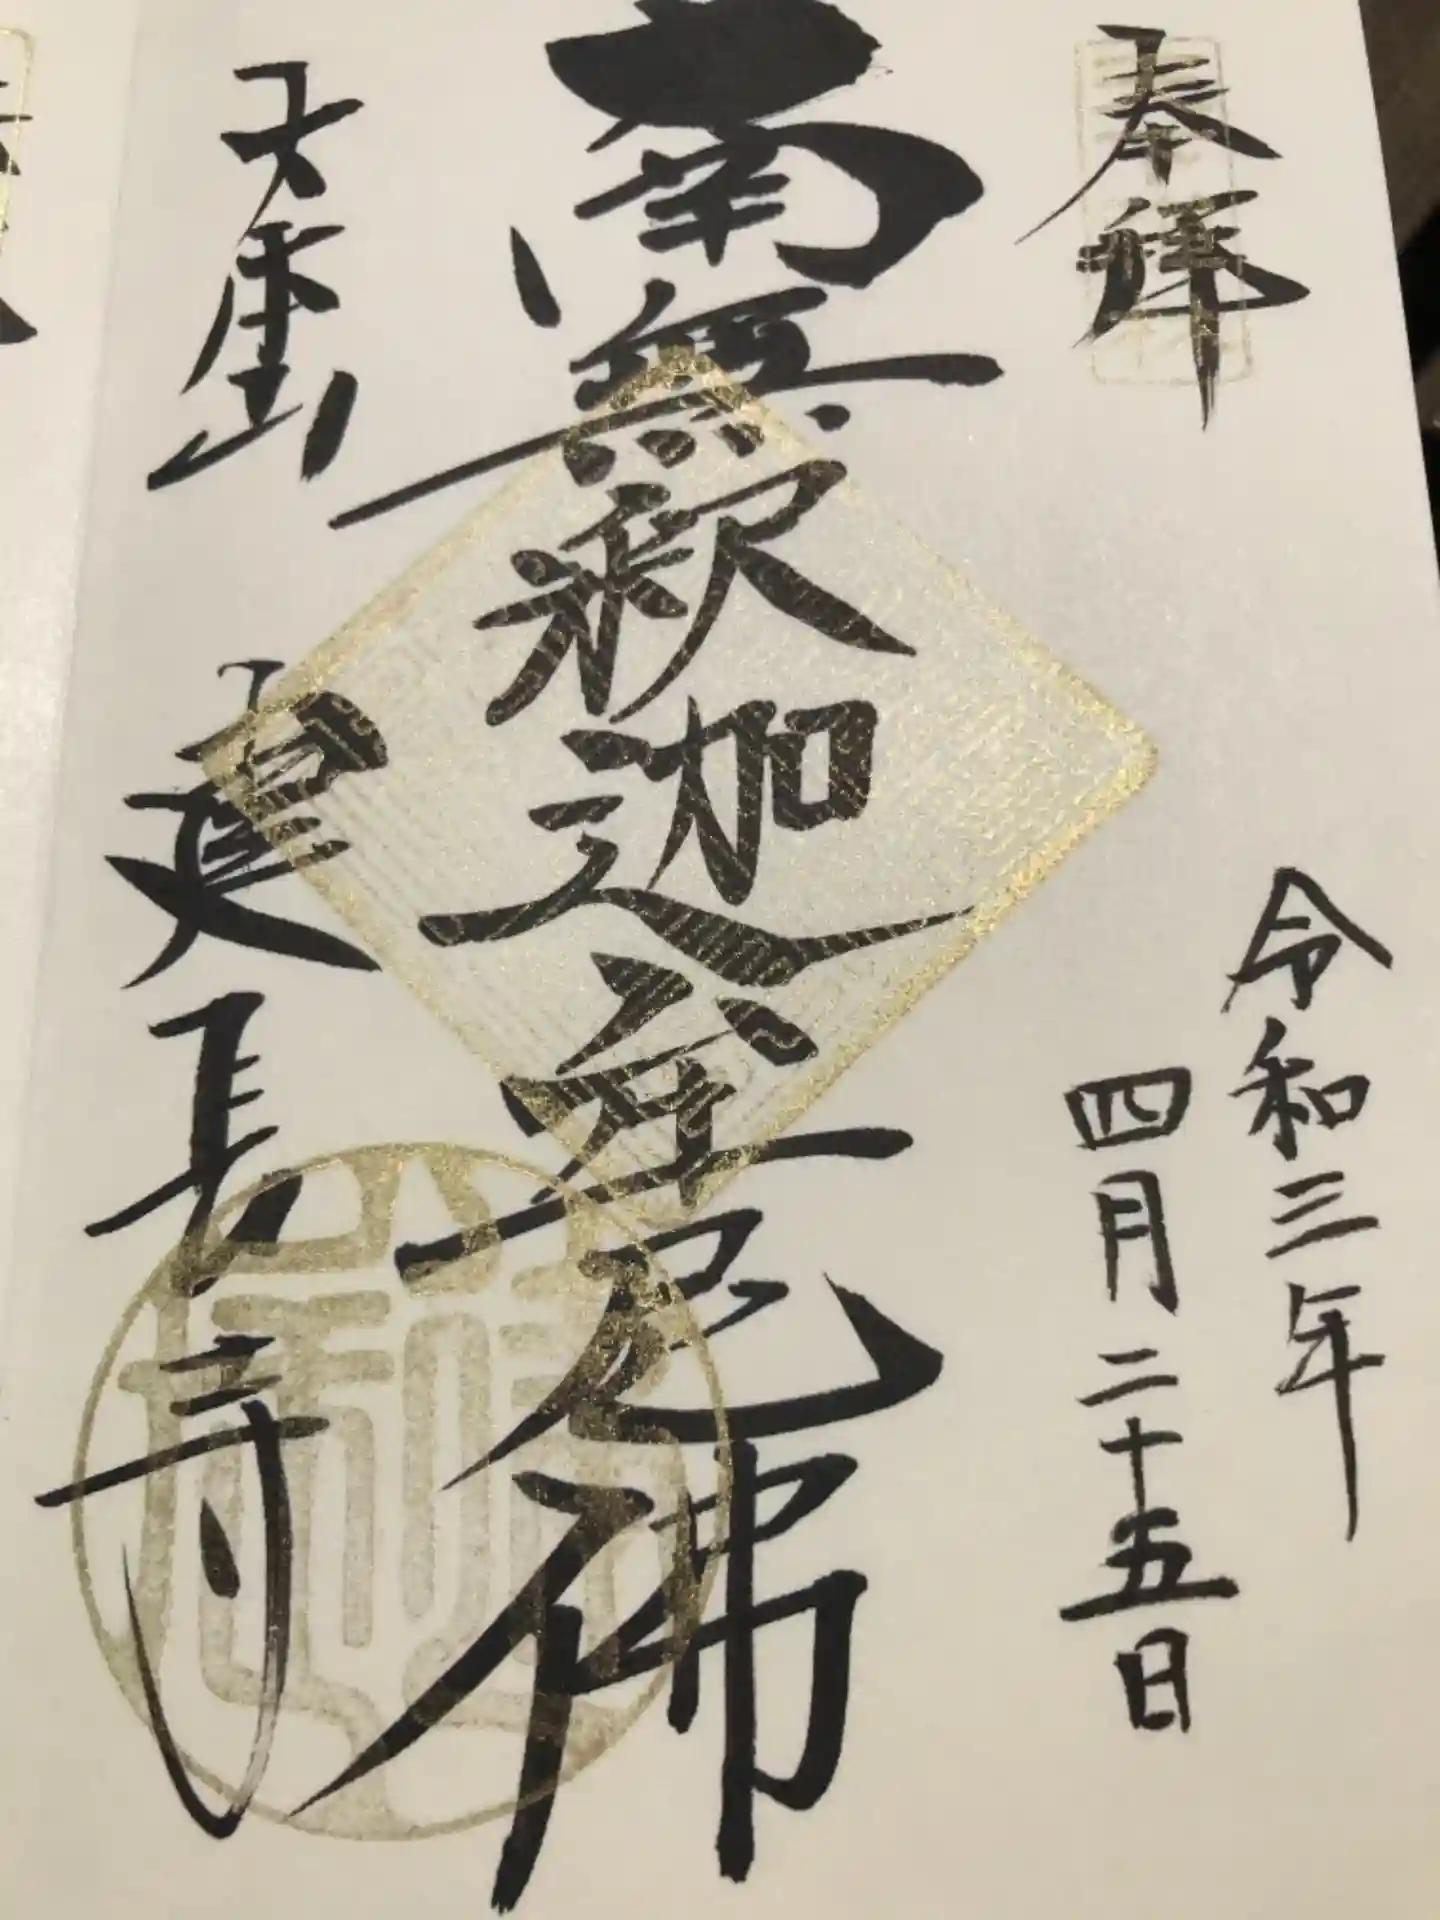 奉拝
令和三年
四月二十五日
南無釈迦牟尼佛
山 建長寺